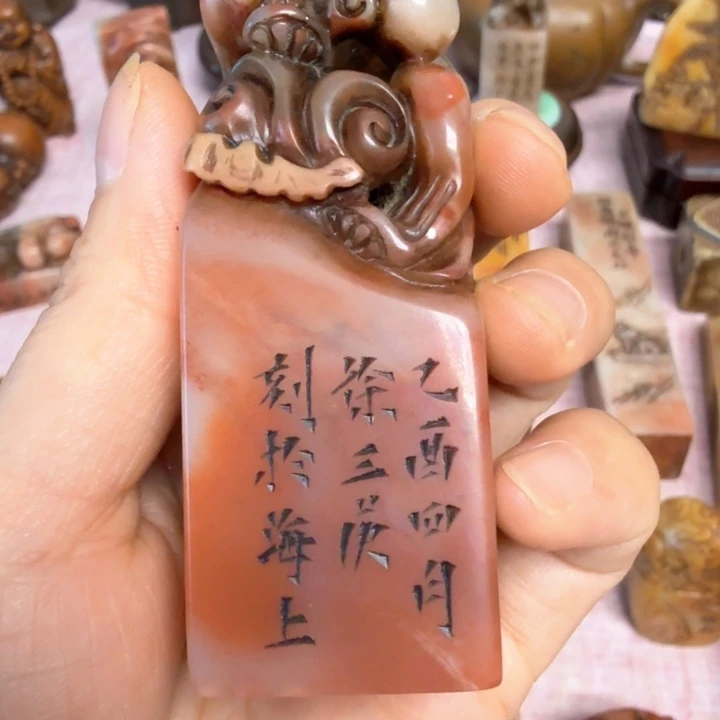 乙酉四月
徐三庚
刻於海上